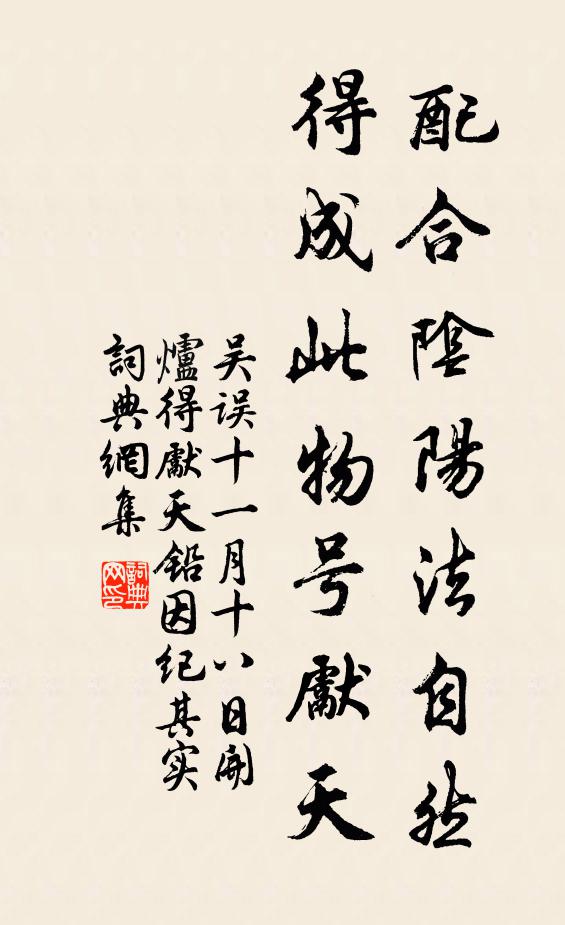 配合陰陽法自然
得成此物号獻天
吴误十一月十八日開
爐得獻天鉛因纪其实
詞典網集
詞典網印